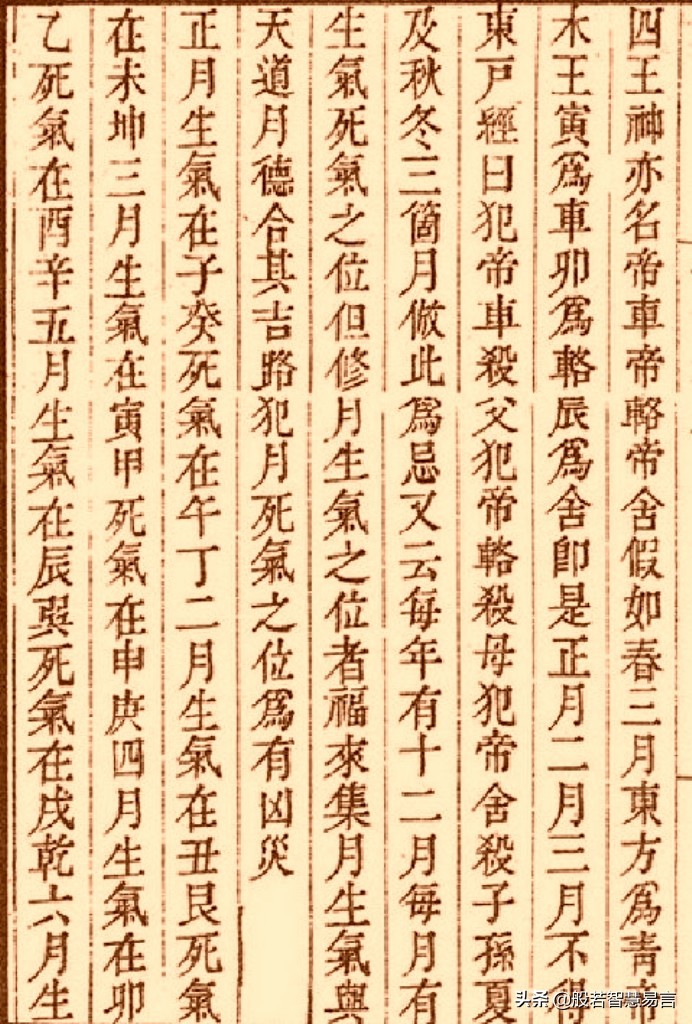 四王神亦名帝車帝輅帝舍假如春三月東方爲靑帝
木王寅爲車卯爲輅辰爲舍卽是正月二月三月不得
東戸經曰犯帝車殺父犯帝輅殺母犯帝舍殺子孫夏
及秋冬三箇月倣此爲忌又云每年有十二月每月有
生氣死氣之位但修月生氣之位者福來集月生氣與
天道月德合其吉路犯月死氣之位爲有凶災
正月生氣在子癸死氣在午丁二月生氣在丑艮死氣
在未坤三月生氣在寅甲死氣在申庚四月生氣在卯
乙死氣在酉辛五月生氣在辰巽死氣在戌乾六月生
头条 @般若智慧易言